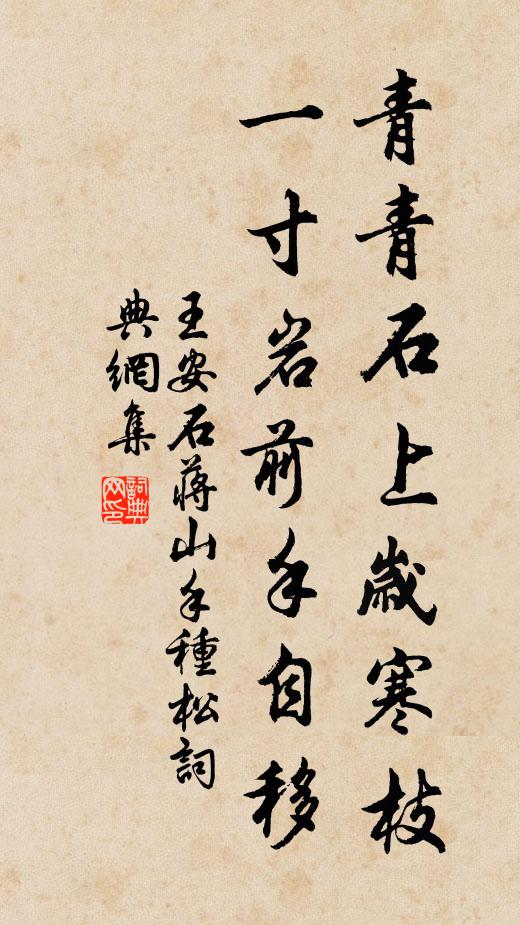 青青石上歲寒枝
一寸岩前手自移
王安石蔣山手種松詞
典網集
詞典網印